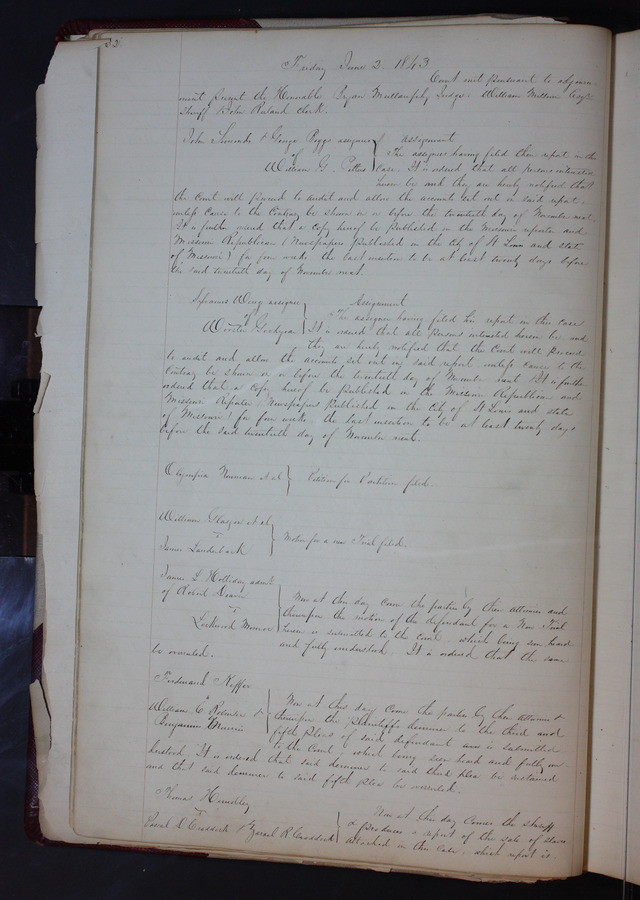 32
Friday June 2. 1843
Court met pursuant to adjourn-
ment present the Honorable Bryan Mullanphy Judge. William Milburn Esqr
Sheriff & John Ruland clerk.
John Simonds & George Boggs assignees
of
William G. Pettus
Assignment
The assignees having filed their report in this
case. It is ordered that all persons interested
herein be and they are hereby notified that
the Court will proceed to audit and allow the accounts set out in said report.
unless cause to the contrary be shown on or before the twentieth day of November next.
It is further ordered that a copy hereof be published in the Missouri reporter and
Missouri Republican (Newspapers published in the City of St Louis and state
of Missouri) for four weeks the last insertion to be at least twenty days before
the said twentieth day of November next.
Sylvanus Wing assignee
of
Assignment
The assignee having filed his report in this case
It is ordered that all persons interested herein be and
they are hereby notified that the Court will proceed
to audit and allow the accounts set out in said report unless cause to the
contrary be shown on or before the twentieth day of November next. It is further
ordered that a copy hereof be published in the Missouri Republican and
Missouri Reporter (Newspapers published in the City of St Louis and state
of Missouri) for four weeks the last insertion to be at least twenty days
before the said twentieth day of November next.
Olympia Newman et al
Petition for Partition filed.
William Glasgow et al
vs
James Lauderback
Motion for a new Trial filed.
James L Holliday admr.
of
vs
Lockwood
Now at this day come the parties by their attornies and
thereupon the motion of the defendant for a New Trial
herein is submitted to the court. which being seen heard
and fully understood. It is ordered that the same
be overruled.
Ferdinand
vs
William C &
Benjamin
Now at this day come the parties by their attornies &
thereupon the plaintiffs demurrer to the third and
fifth pleas of said defendant are is submitted
to the Court, which being seen heard and fully un-
derstood. It is ordered that said demurrer to said third plea be sustained
and that said demurrer to said fifth plea be overruled.
Thomas
vs
& R Craddock
Now at this day comes the sheriff
& produces a report of the sale of slaves
attached in this case. which report is